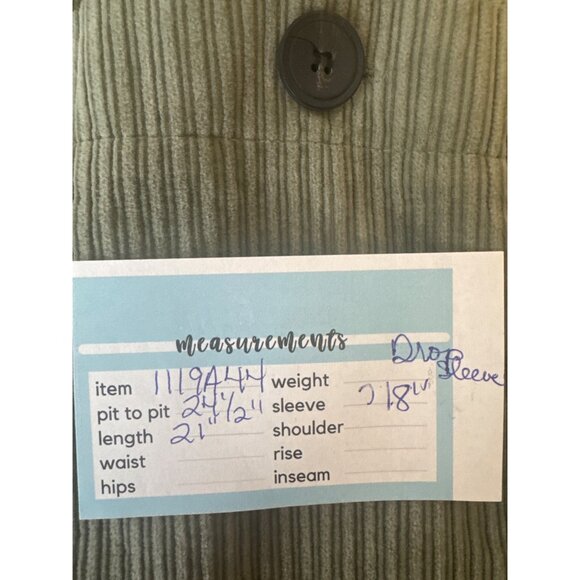 measurements
Drop Sleeve
item 1119A44 weight
pit to pit 24 1/2" sleeve 18"
length 21" shoulder
waist rise
hips inseam